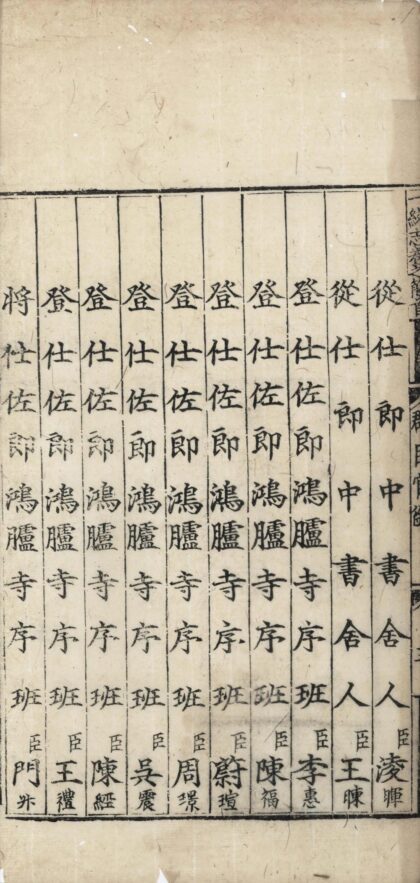 從仕郎中書舍人臣淩暉
從仕郎中書舍人臣王暕
登仕佐郎鴻臚寺序班臣李惠
登仕佐郎鴻臚寺序班臣陳福
登仕佐郎鴻臚寺序班臣蔚瑄
登仕佐郎鴻臚寺序班臣周璟
登仕佐郎鴻臚寺序班臣吳震
登仕佐郎鴻臚寺序班臣陳經
登仕佐郎鴻臚寺序班臣王禮
將仕佐郎鴻臚寺序班臣門